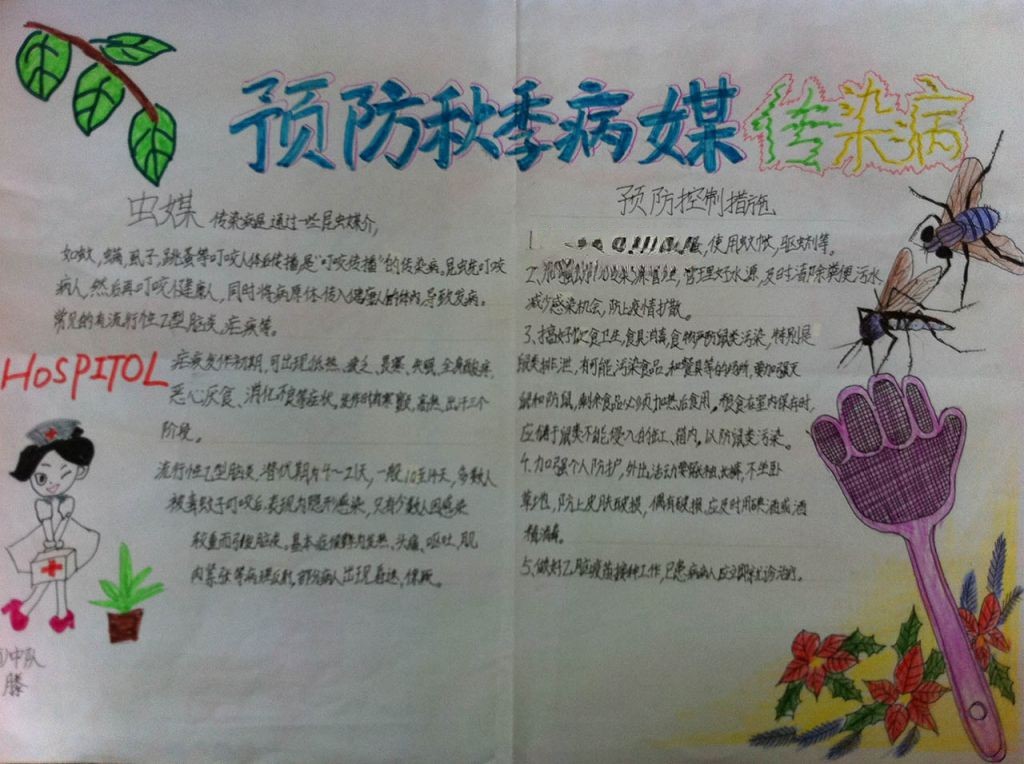 预防秋季病媒传染病
虫媒 传染病是通过一些昆虫媒介,
如蚊,螨,虱子,跳蚤等叮咬人体后传播是"叮咬传播"的传染病。昆虫先叮咬
病人,然后再叮咬健康人,同时将病原体传入健康人的体内,导致发病。
常见的有流行性乙型脑炎,疟疾等。
HOSPITOL
疟疾发作初期,可出现低热、疲乏、畏寒、失眠、全身酸疼、
恶心、厌食、消化不良等症状,发作时有寒颤,高热,出汗三个
阶段。
流行性乙型脑炎,潜伏期为4~21天,一般10至14天,多数人
被毒蚊子叮咬后,表现为隐形感染,只有少数人因感染
较重而引起脑炎。基本症候群为发热、头痛、呕吐、肌
肉紧张等病理反射,部分病人出现昏迷、惊厥。
中队
滕
预防控制措施
1. 使用蚊帐,驱虫剂等。
2. 管理好水源,及时清除粪便污水
减少感染机会,防止疫情扩散。
3、搞好饮食卫生,食具消毒,食物严防鼠类污染,特别是
鼠类排泄,有可能污染食品,和餐具等的场所,要加强灭
鼠和防鼠,剩余食品必须加热后食用。粮食在室内保存时,
应储于鼠类不能侵入的缸、箱内,以防鼠类污染。
4、加强个人防护,外出活动要 不坐卧
草地,防止皮肤破损,偶有破损,应及时用碘酒或酒
精消毒。
5、做好乙脑疫苗接种工作,已患病病人应立即就诊治疗。